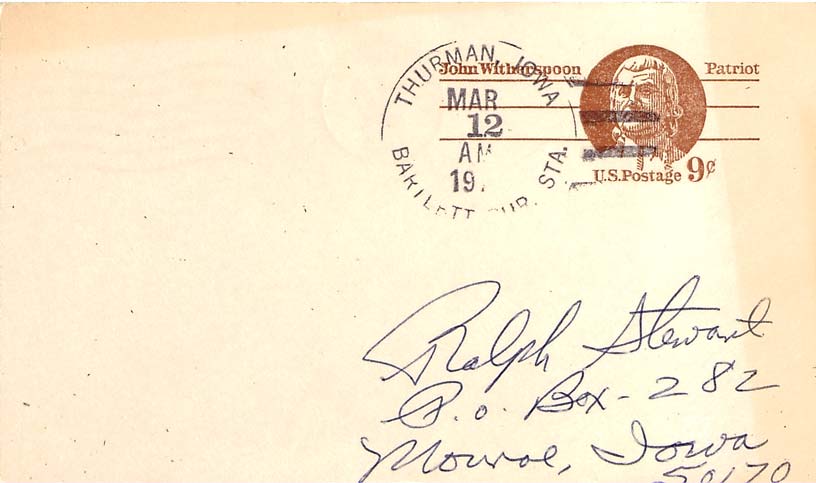 John Witherspoon Patriot
THURMAN, IOWA
MAR
12
AM
19
BARTLETT RUR. STA.
U.S.Postage 9¢
Ralph Stewart
P.o. Box-282
Monroe, Iowa
50170